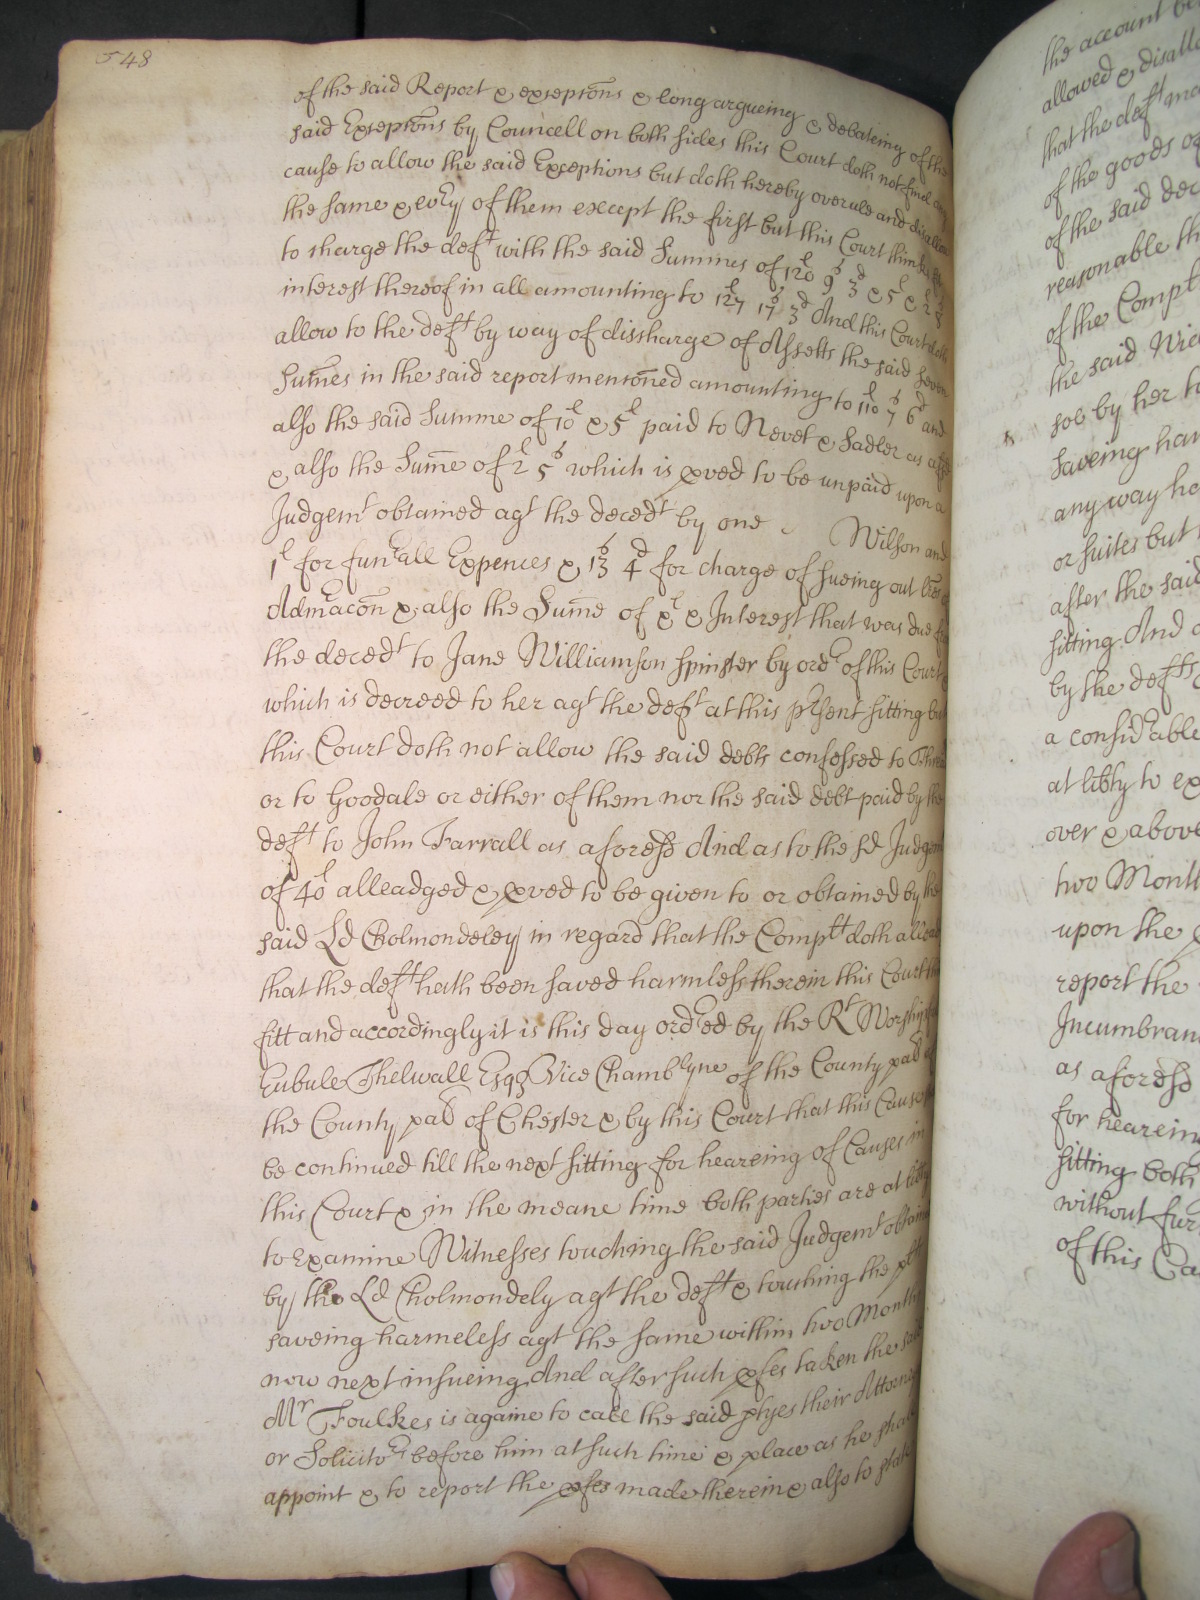 548
of the said Report & exeptons & long argueing & debateing of the
said Exseptons by Councell on both sides this Court doth not find any
cause to allow the said Exceptions but doth hereby overule and disallow
the same & eu'y of them except the first but this Court thinkes fit
to charge the deft with the said Summes of 120l 9s 3d & 5l & 2l 8s
interest thereof in all amounting to 127l 17s 3d And this Court doth
allow to the deft by way of discharge of Assetts the said seven
Sumes in the said report mentoned amounting to 110l 7s 6d and
also the said Summe of 10l & 5l paid to Nevet & Sadler as
& also the Sume of 2l 5s which is pved to be unpaid upon a
Judgemt obtained agt the decedt by one Wilson and
1l for fun'all Expences & 13s 4d for charge of sueing out
Admacon & also the Sume of xl & Interest that was due
the decedt to Jane Williamson spinster by ord' of this Court
which is decreed to her agt the deft at this psent sitting but
this Court doth not allow the said debts confessed to
or to Goodale or either of them nor the said debt paid by the
deft to John Farrall as aforesd And as to the sd Judgemt
of 40l alleadged & pved to be given to or obtained by the
said Ld Cholmondeley in regard that the Complt doth alleadg
that the deft hath been saved harmless therein this Court
fitt and accordingly it is this day ord'ed by the Rt Worship
Eubule Thelwall Esqr Vice Chamb'lyne of the County pal of
the County pal of Chester & by this Court that this Cause
be continued till the next sitting for heareing of Causes in
this Court & in the meane time both parties are at lib'ty
to Examine Witnesses touching the said Judgemt obtained
by the Ld Cholmondely agt the deft & touching the plt
saveing harmeless agt the same within two Months
now next insueing And after such pfes taken the said
Mr Foulkes is againe to call the said ptyes their Attorney
or Solicito's before him at such time & place as he shall
appoint & to report the pfes made therein & also to state
the account
allowed & disallo
that the deft
of the goods
of the said dec
reasonable
of the Complt
the said
by her
saveing har
any way
or suites but
after the said
sitting And
by the defts
a consid'able
at lib'ty to ex
over & above
two Month
upon the
report the
Incumbran
as aforesd
for heareing
sitting both
without fur
of this Ca